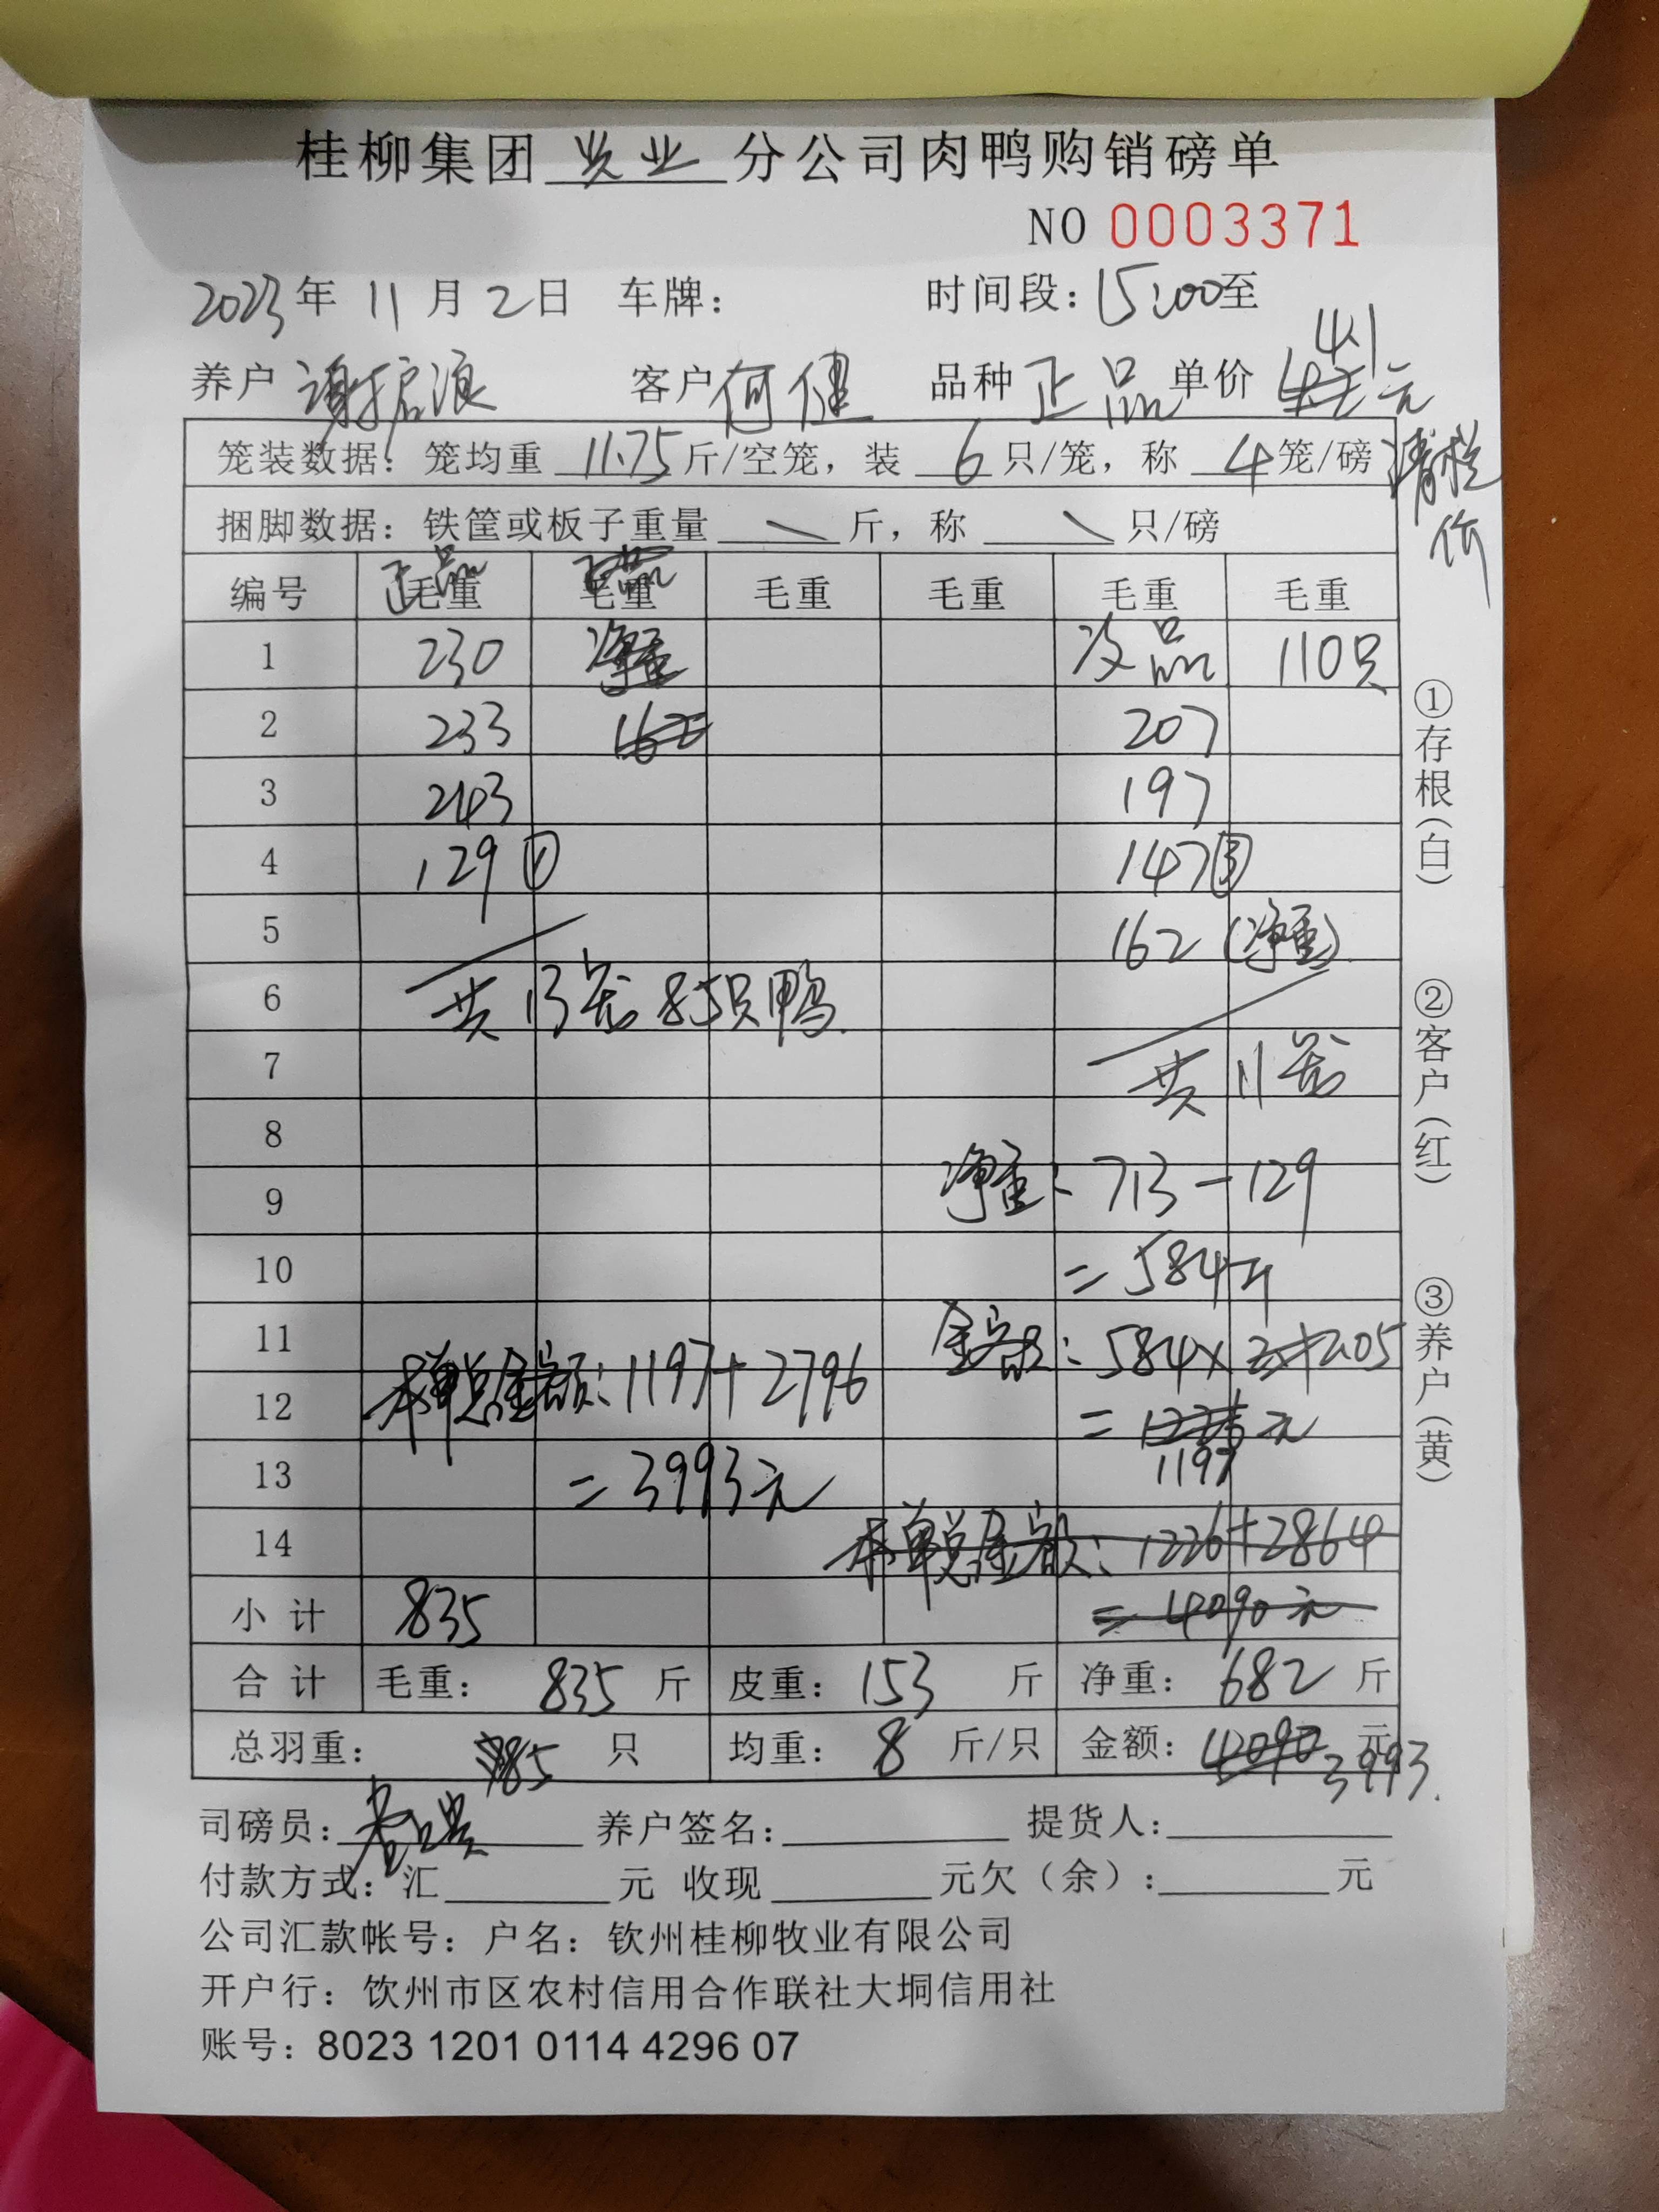 桂柳集团 兴业 分公司肉鸭购销磅单
NO 0003371
2023年 11月 2日 车牌: 时间段: 15:00至
4.1
养户 谢振浪 客户 何健 品种 正品 单价 元
清栏价
笼装数据: 笼均重 11.75 斤/空笼, 装 6 只/笼, 称 4 笼/磅
捆脚数据: 铁筐或板子重量 \ 斤, 称 \ 只/磅
正品
编号 毛重 毛重 毛重 毛重 毛重 毛重
1 230 净重 次品 110只
2 233 162 207
3 243 197
4 129① 147③
5 162 (净重)
6 共13笼 85只鸭
7 共11笼
8
9 净重: 713-129
10 =584斤
11 金额: 584×2.05
12 本单总金额: 1197+2796 = 元
13 =3993元 1197
14 本单总金额: 1226+2864
小计 835 =4090元
合计 毛重: 835 斤 皮重: 153 斤 净重: 682 斤
总羽重: 85 只 均重: 8 斤/只 金额: 4090 元 3993.
司磅员: 养户签名: 提货人:
付款方式: 汇 元 收现 元欠（余）: 元
公司汇款帐号: 户名: 钦州桂柳牧业有限公司
开户行: 饮州市区农村信用合作联社大垌信用社
账号: 8023 1201 0114 4296 07
①存根(白)
②客户(红)
③养户(黄)